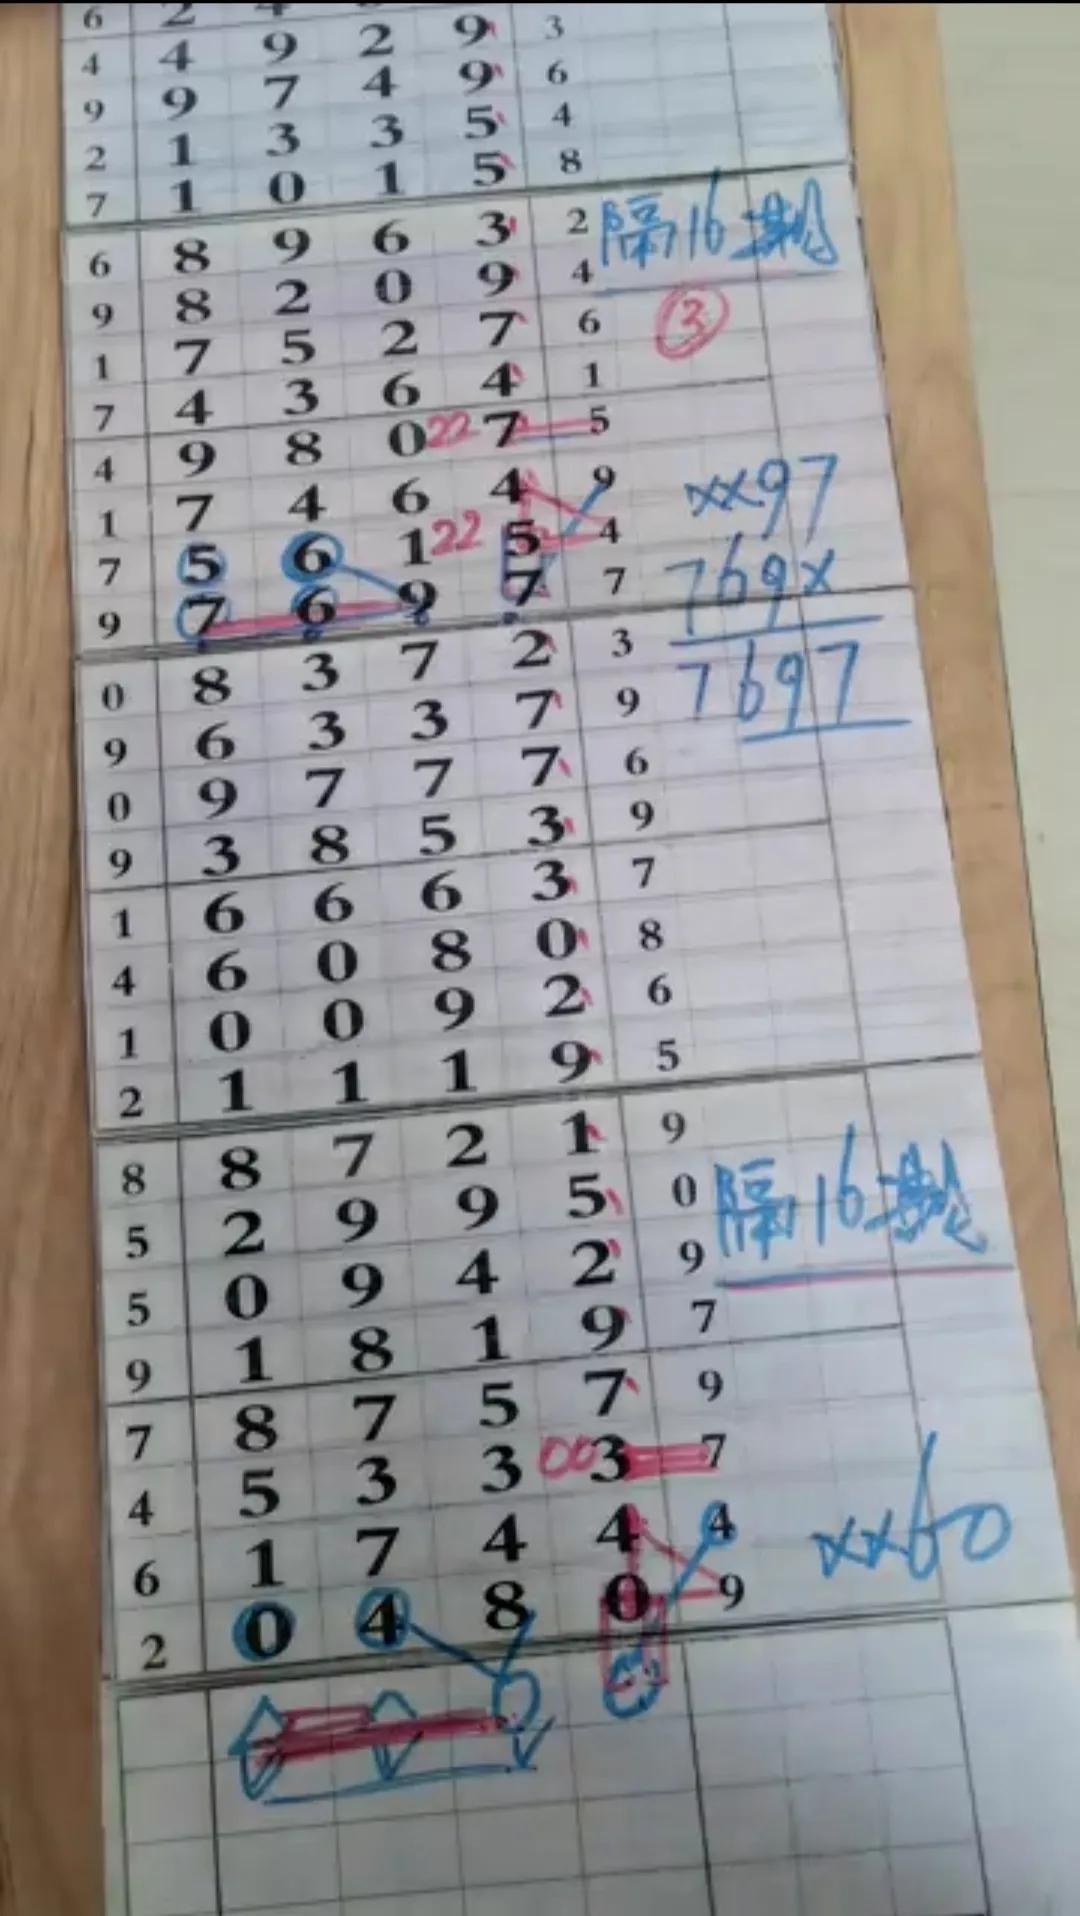 6 2 4
4 4 9 2 9 3
9 9 7 4 9 6
2 1 3 3 5 4
7 1 0 1 5 8
6 8 9 6 3 2 隔16期
9 8 2 0 9 4
1 7 5 2 7 6 ③
7 4 3 6 4 1
4 9 8 0 22 7 5
1 7 4 6 4 9 xx97
7 5 6 1 22 5 4 769x
9 7 6 9 7 7
0 8 3 7 2 3 7697
9 6 3 3 7 9
0 9 7 7 7 6
9 3 8 5 3 9
1 6 6 6 3 7
4 6 0 8 0 8
1 0 0 9 2 6
2 1 1 1 9 5
8 8 7 2 1 9
5 2 9 9 5 0 隔16期
5 0 9 4 2 9
9 1 8 1 9 7
7 8 7 5 7 9
4 5 3 3 00 3 7
6 1 7 4 4 4 xx60
2 0 4 8 0 9